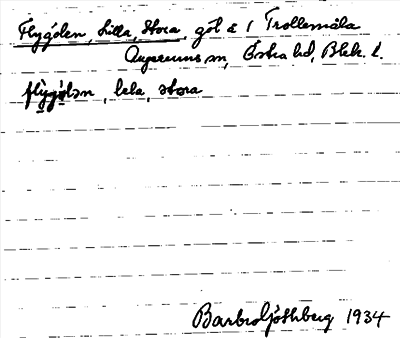 Flygölen, Lilla, Stora, göl à 1 Trollemåla
Augerums sn, Östra hd, Blek. l.
flygölən, lela, stora
Barbro Ljöthberg 1934